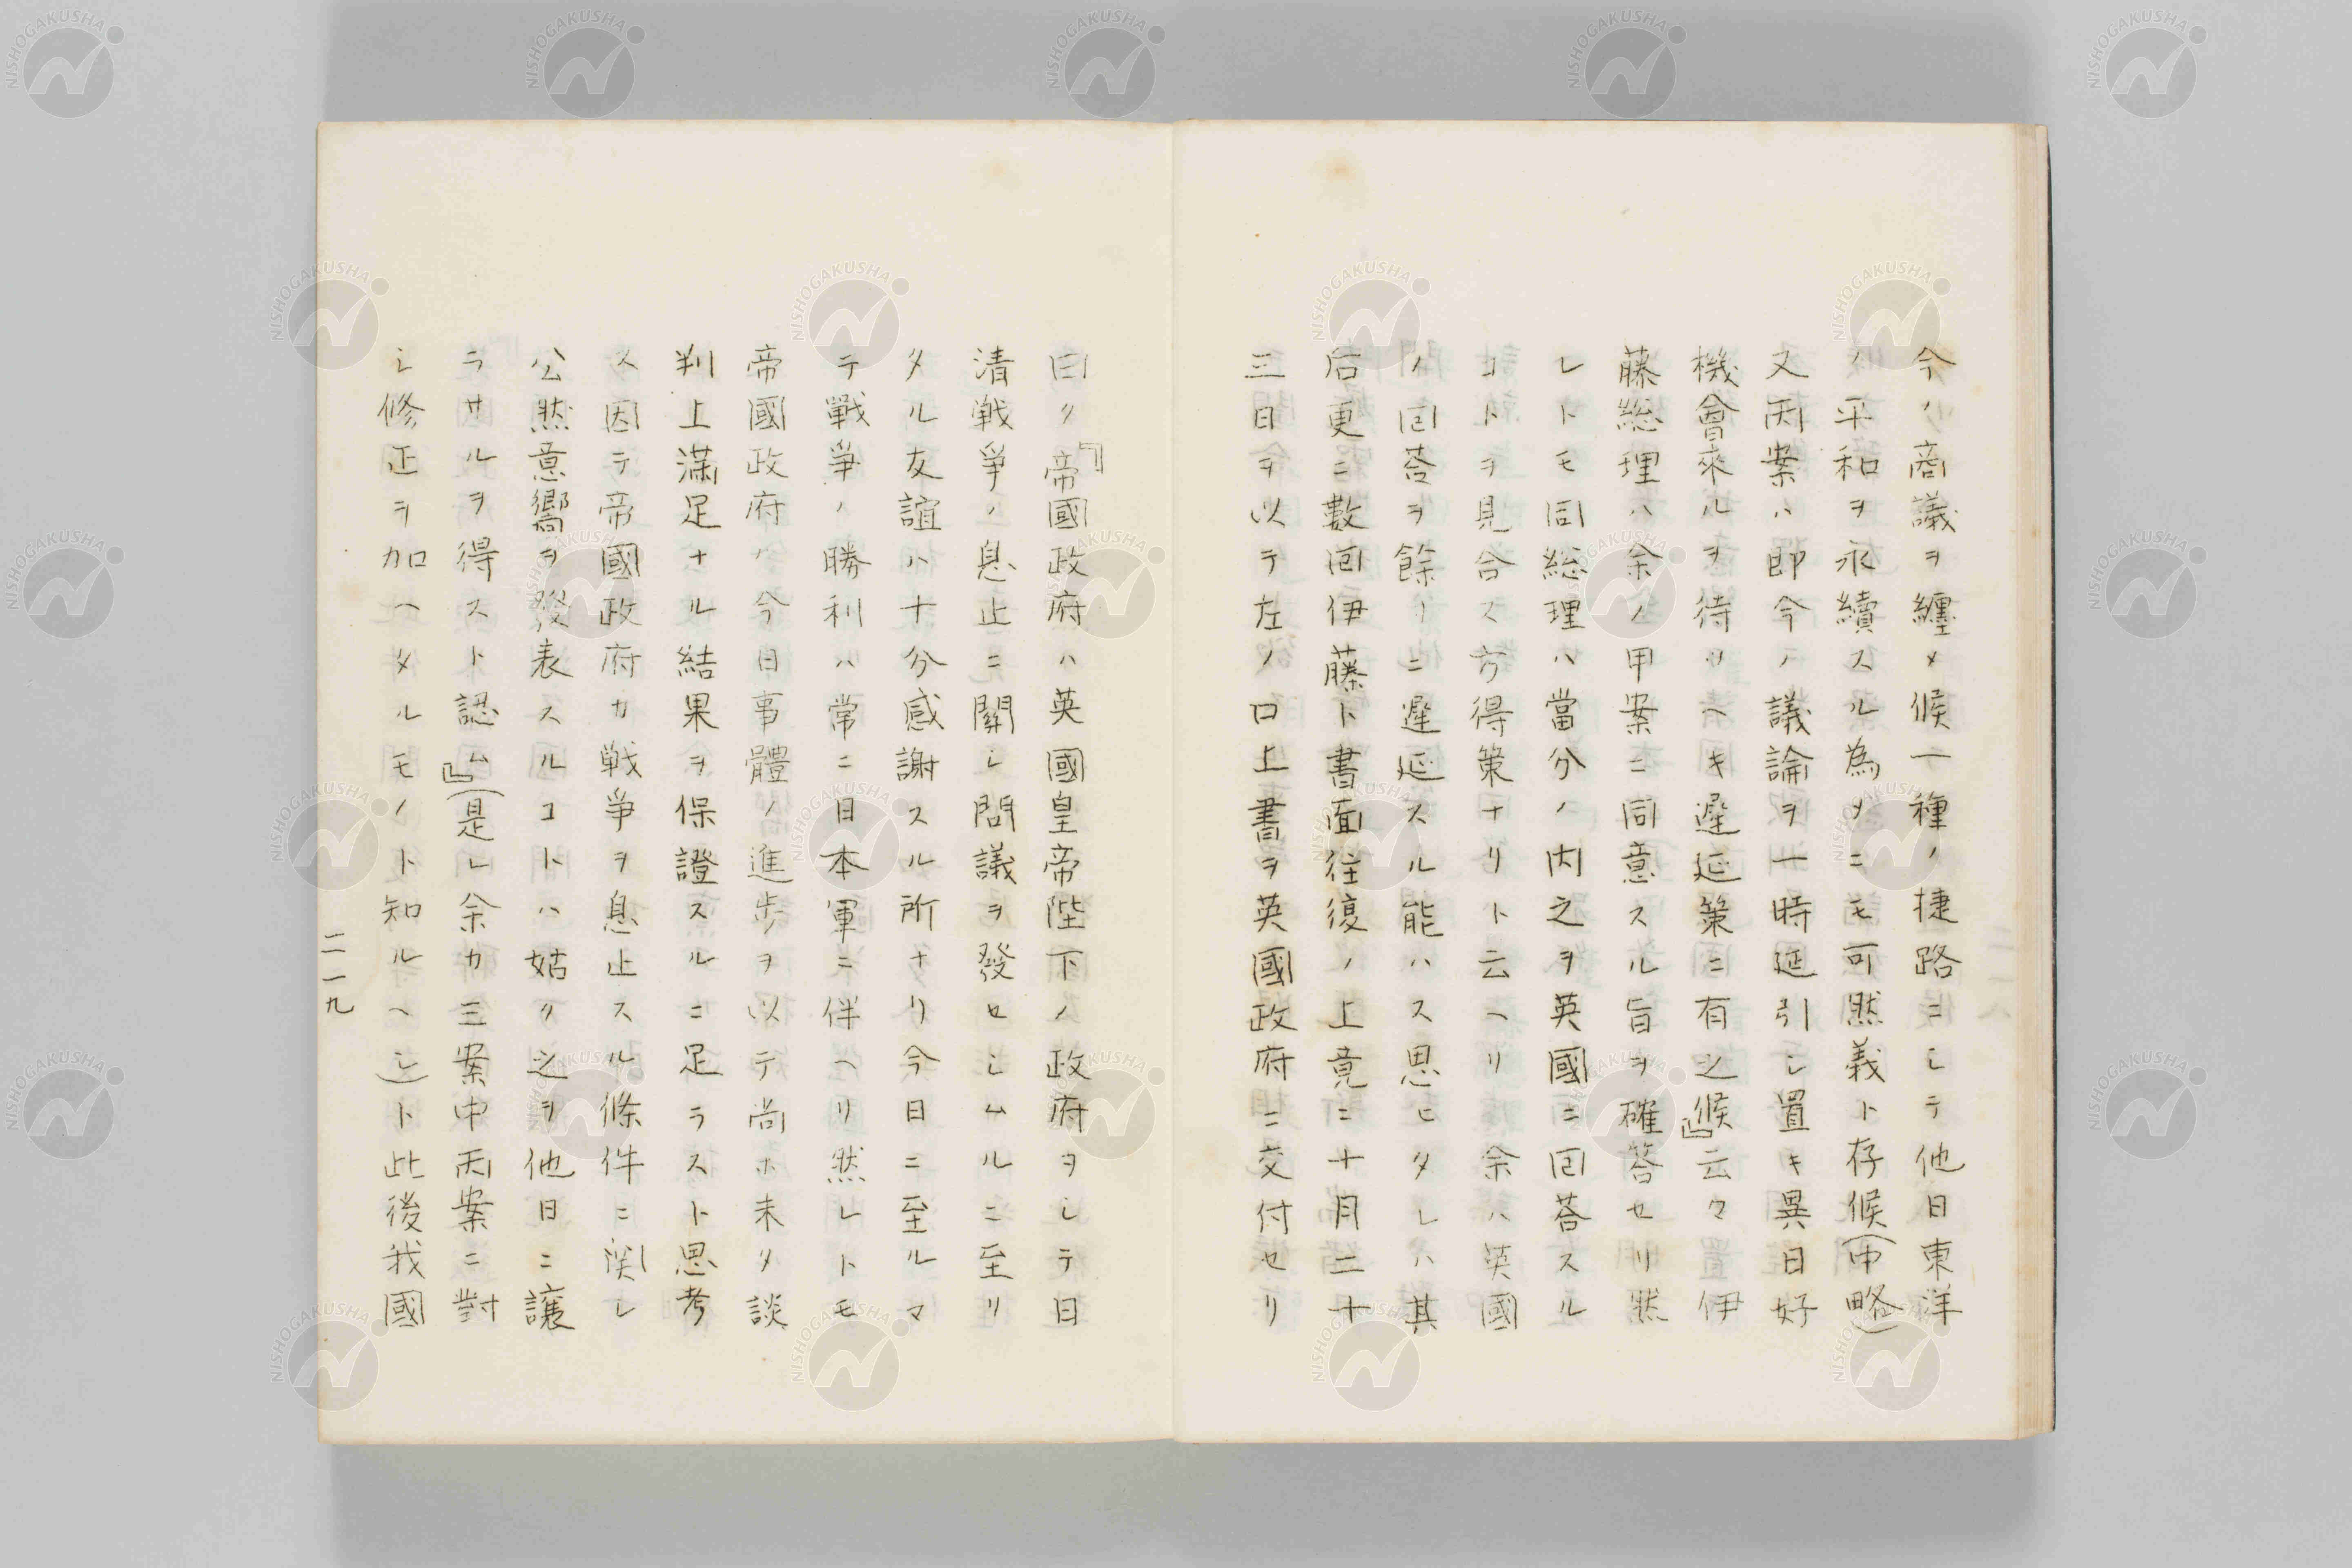 今ノ商議ヲ纏メ候一種ノ捷路ニシテ他日東洋
ノ平和ヲ永續スル為メニモ可然義ト存候（中略）
又丙案ハ即今ノ議論ヲ一時延引シ置キ異日好
機會來ルヲ待ツヘキ遲延策ニ有之候』云々置伊
藤総理ハ余ノ甲案ニ同意スル旨ヲ確答セリ然
レトモ同総理ハ當分ノ内之ヲ英國ニ回荅スル
コトヲ見合ス方得策ナリト云ヘリ余ハ英國
ノ回荅ヲ餘リニ遲延スル能ハス思ヒタレハ其
后更ニ數回伊藤ト書面往復ノ上竟ニ十月二十
三日ヲ以テ左ノ口上書ヲ英國政府ニ交付セリ
曰ク『帝國政府ハ英國皇帝陛下ノ政府ヲシテ日
清戦爭ノ息止ニ關シ問議ヲ發セシムルニ至リ
タル友誼ハ十分感謝スル所ナリ今日ニ至ルマ
テ戰爭ノ勝利ハ常ニ日本軍ニ伴ヘリ然レトモ
帝國政府ハ今日事體ノ進步ヲ以テ尚ホ未タ談
判上滿足ナル結果ヲ保證スルニ足ラスト思考
ス因テ帝國政府カ戦爭ヲ息止スル條件ニ関シ
公然意嚮ヲ發表スルコトハ姑ク之ヲ他日ニ譲
ラサルヲ得スト認ム』（是レ余カ三案中丙案ニ對
シ修正ヲ加ヘタルモノト知ルヘシ）ト此後我國
二一九
NISHOGAKUSHA